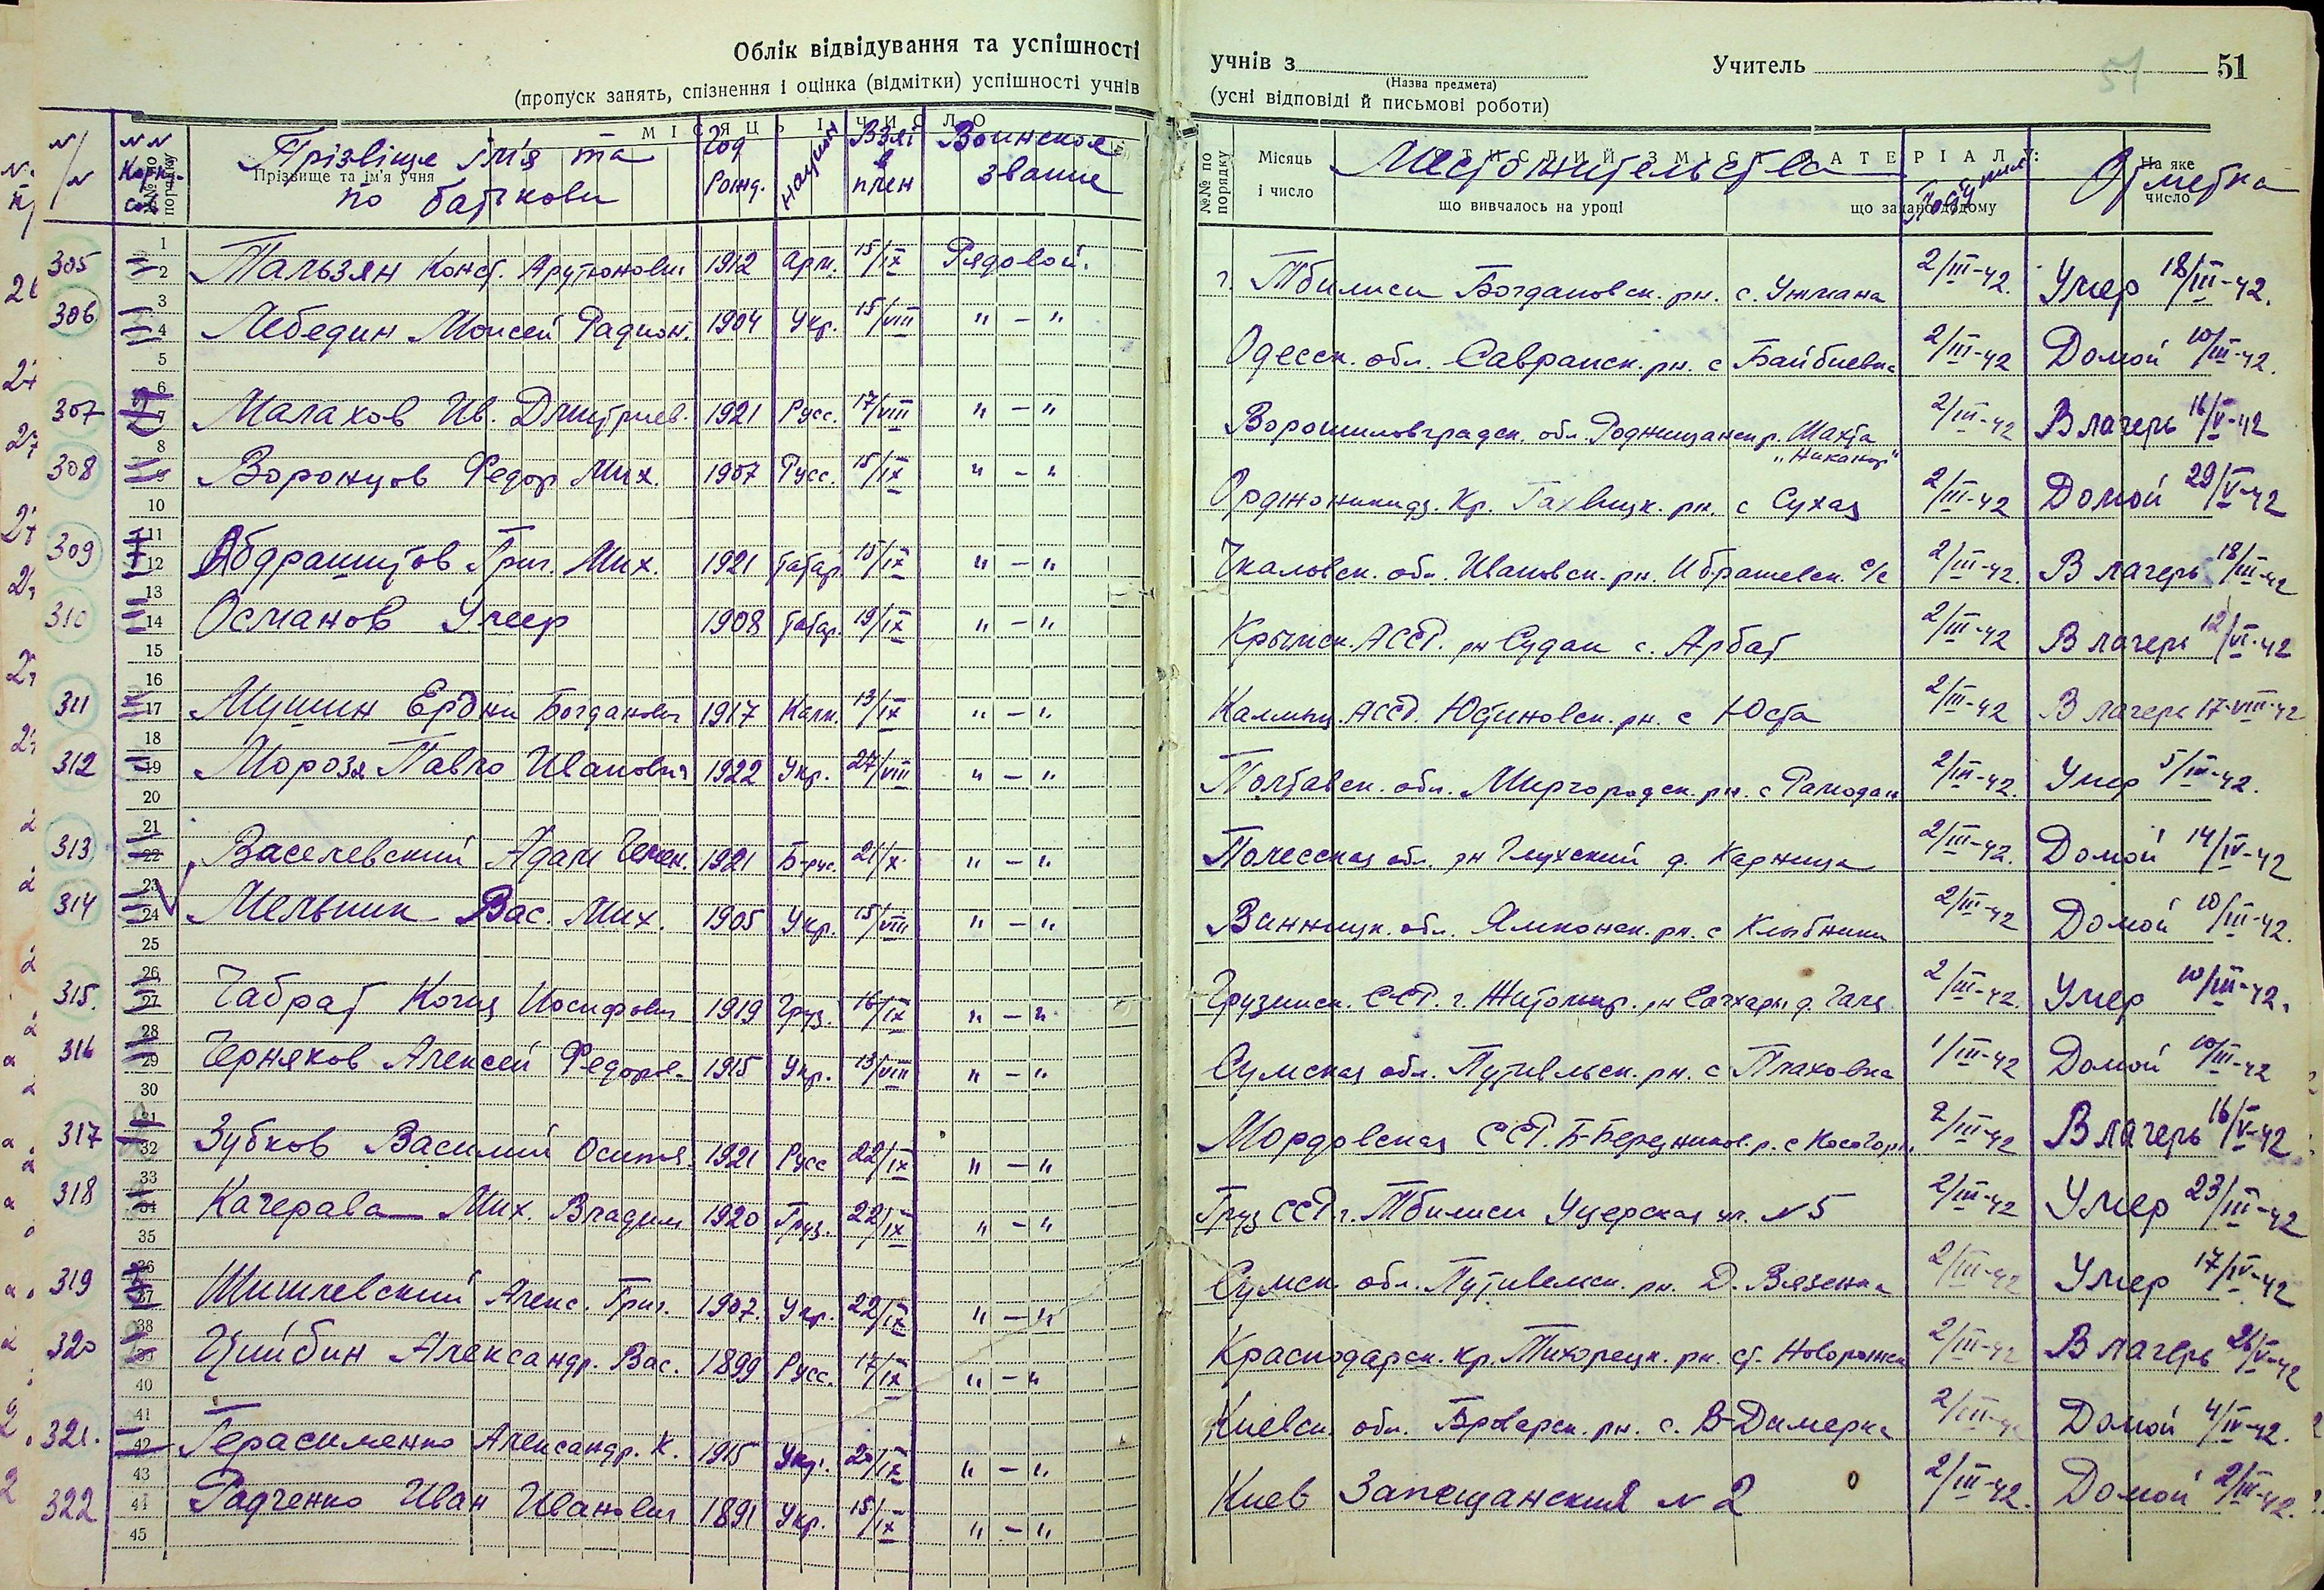 Облік відвідування та успішності
(пропуск занять, спізнення і оцінка (відмітки) успішності учнів
учнів з
(Назва предмета)
Учитель
51
51
(усні відповіді й письмові роботи)
№№ по порядку
Прізвище та ім'я учня
МІСЯЦЬ І ЧИСЛО
Прізвіще ім'я та по батькови
Год рожд.
национ
Взят в плен
Воинское звание
№№ по порядку
Місяць і число
що вивчалось на уроці
що задано додому
На яке число
Местожительства
Поступил
Отметка
305 Пальзян Конст. Арутюнович 1912 Арм. 15/IX Рядовой. г. Тбилиси Богдановск. рн. с. Ужмана 2/III-42. Умер 18/III-42.
306 Лебедин Моисей Радион. 1904 Укр. 15/VIII " – " Одесск. обл. Савранск. рн. с Байбиевка 2/III-42 Домой 10/III-42.
307 Малахов Ив. Дмитриев. 1921 Русс. 17/VIII " – " Ворошиловградск. обл. Шахта "Никанор" 2/III-42 В лагерь 16/V-42
308 Воронцов Федор Мих. 1907 Русс. 15/IX " – " Орджоникидз. Кр. рн. с Сухая 2/III-42 Домой 29/V-42
309 Абдрашитов Григ. Мих. 1921 Татар. 15/IX " – " Чкаловск. обл. Ивановск. рн. Ибрашевск. с/с 2/III-42. В лагерь 18/III-42
310 Османов Умер 1908 Татар. 19/IX " – " Крымск. АССР. рн Судак с. Арбат 2/III-42 В лагерь 12/VI-42
311 Мушин Ердни Богданович 1917 Калм. 13/IX " – " Калмыц. АССР. Юстиновск. рн. с Юста 2/III-42 В лагерь 17-VIII-42
312 Мороз Павло Иванович 1922 Укр. 27/VIII " – " Полтавск. обл. Миргородск. рн. с Рамодан 2/III-42. Умер 5/III-42.
313 Васелевский Адам Семен. 1921 Б-рус. 21/X " – " Полесская обл. рн Глухский д. Карница 2/III-42. Домой 14/IV-42
314 Мельник Вас. Мих. 1905 Укр. 15/VIII " – " Винницк. обл. Ямпонск. рн. с Клыбники 2/III-42 Домой 10/III-42.
315. Чабрат Иосифович 1919 Груз. 16/IX " – " Грузинск. ССР. г. Житомир. рн д. 2/III-42. Умер 10/III-42.
316 Черняков Алексей Федоров. 1915 Укр. 13/VIII " – " Сумская обл. Путивльск. рн. с Плаховка 1/III-42 Домой 10/III-42
317 Зубков Василий Осипов. 1921 Русс 22/IX " – " Мордовская ССР. Б-Березников. р. с Косогоры 2/III-42 В лагерь 16/V-42
318 Качерава Мих. Владим 1920 Груз. 22/IX " – " Груз ССР г. Тбилиси Уцерская ул. N 5 2/III-42 Умер 23/III-42
319 Шишлевский Алекс. Григ. 1907. Укр. 22/IX " – " Сумск. обл. Путивельск. рн. Д. Вязенка 2/III-42 Умер 17/IV-42
320 Цыйбин Александр. Вас. 1899 Русс. 17/IX " – " Краснодарск. кр. Тихорецк. рн. ст. 2/III-42 В лагерь 26/V-42
321. Герасименко Александр. К. 1915 Укр. 20/IX " – " Киевск. обл. Броварск. рн. с. В-Димерка 2/III-42 Домой 4/IV-42.
322 Радченко Иван Иванович 1891 Укр. 15/IX " – " Киев Запещанский N 2 2/III-42. Домой 2/III-42.